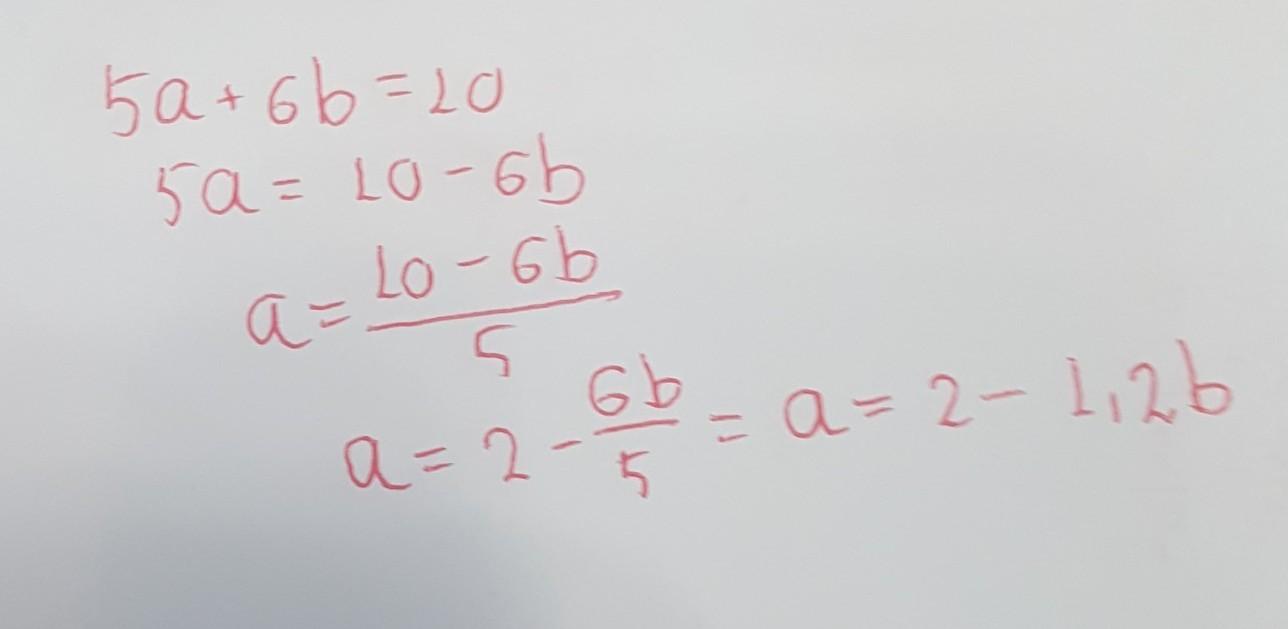 5a + 6b = 10
5a = 10 - 6b
a = \frac{10 - 6b}{5}
a = 2 - \frac{6b}{5} = a = 2 - 1,2b